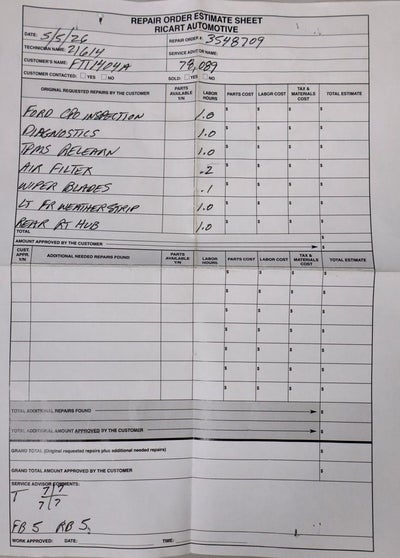 REPAIR ORDER ESTIMATE SHEET
RICART AUTOMOTIVE
DATE: 5/5/26 REPAIR ORDER #: 3548709
TECHNICIAN NAME: 21614 SERVICE ADVISOR NAME:
CUSTOMER'S NAME: FTT1404A 78,089
CUSTOMER CONTACTED: YES NO SOLD: YES NO
ORIGINAL REQUESTED REPAIRS BY THE CUSTOMER PARTS AVAILABLE Y/N LABOR HOURS PARTS COST LABOR COST TAX & MATERIALS COST TOTAL ESTIMATE
FORD CPO INSPECTION 1.0 $ $ $ $
DIAGNOSTICS 1.0 $ $ $ $
TPMS RELEARN 1.0 $ $ $ $
AIR FILTER .2 $ $ $ $
WIPER BLADES .1 $ $ $ $
LT FR WEATHERSTRIP 1.0 $ $ $ $
REAR RT HUB 1.0 $ $ $ $
TOTAL
AMOUNT APPROVED BY THE CUSTOMER $
CUST. APPR. Y/N ADDITIONAL NEEDED REPAIRS FOUND PARTS AVAILABLE Y/N LABOR HOURS PARTS COST LABOR COST TAX & MATERIALS COST TOTAL ESTIMATE
$ $ $ $
$ $ $ $
$ $ $ $
$ $ $ $
$ $ $ $
$ $ $ $
$ $ $ $
TOTAL ADDITIONAL REPAIRS FOUND $
TOTAL ADDITIONAL AMOUNT APPROVED BY THE CUSTOMER $
GRAND TOTAL (Original requested repairs plus additional needed repairs) $
GRAND TOTAL AMOUNT APPROVED BY THE CUSTOMER $
SERVICE ADVISOR COMMENTS:
T 7 7
7 7
FB 5 RB 5
WORK APPROVED: DATE: TIME: